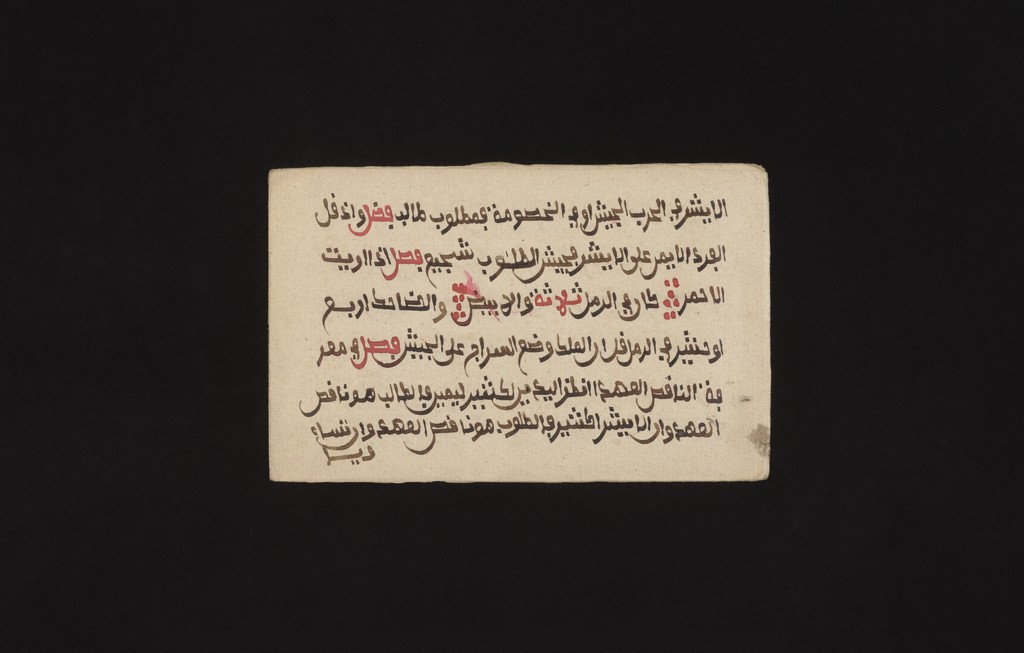 الايشر في الحرب الجيش اوفي الخصومة بمطلوب طالب فصل واذ فل
الفرد الايمر على الايشر فجيش المطلوب شجيع فصل اذا اريت
الاحمر كان في الرمل ثلاثة والابيض والضاحك اربع
او خنثير في الرمل فل ان الملك وضع السراج على الجيش فصل في معر
فة النافص العهد انظر اليه من كنثير ليمين في الطالب هو نافص
العهد وان الايشر اكثنير في المطلوب هو نافص العهد وان نساء
ديسا